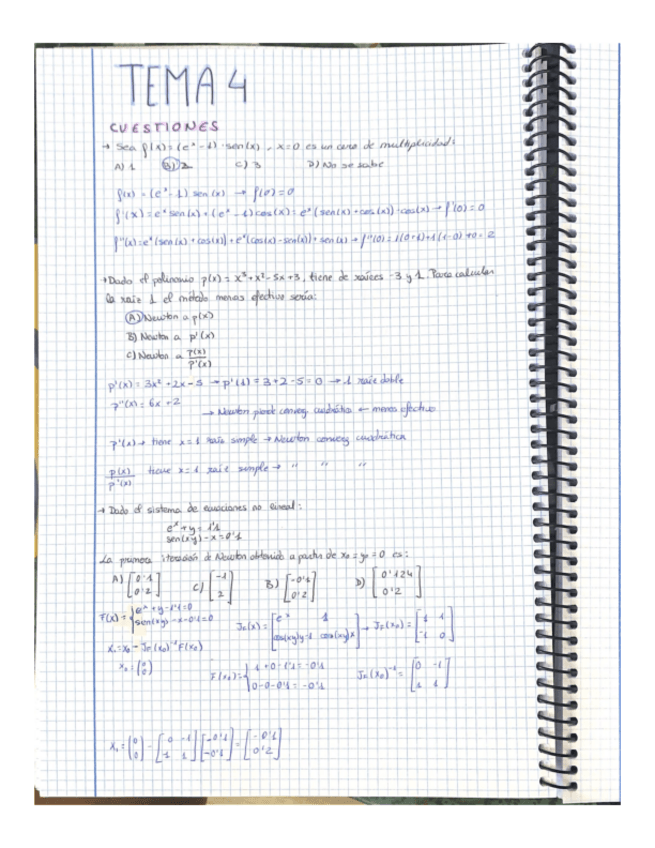 TEMA 4
CUESTIONES
→ Sea f(x) = (e^x - 1) · sen(x), x=0 es un cero de multiplicidad:
A) 1 B) 2 C) 3 D) No se sabe
f(x) = (e^x - 1) sen(x) → f(0) = 0
f'(x) = e^x sen(x) + (e^x - 1) cos(x) = e^x (sen(x) + cos(x)) - cos(x) → f'(0) = 0
f''(x) = e^x (sen(x) + cos(x)) + e^x (cos(x) - sen(x)) + sen(x) → f''(0) = 1(0+1)+1(1-0)+0 = 2
→ Dado el polinomio p(x) = x³ + x² - 5x + 3, tiene de raíces -3 y 1. Para calcular
la raíz 1 el método menos efectivo sería:
A) Newton a p(x)
B) Newton a p'(x)
C) Newton a p(x)/p'(x)
p'(x) = 3x² + 2x - 5 → p'(1) = 3 + 2 - 5 = 0 → 1 raíz doble
p''(x) = 6x + 2
→ Newton pierde converg. cuadrática ← menos efectivo
p'(x) → tiene x = 1 raíz simple → Newton converg cuadrática
p(x)/p'(x) tiene x = 1 raíz simple → " " "
→ Dado el sistema de ecuaciones no lineal:
e^x + y = 1'1
sen(xy) - x = 0'1
La primera iteración de Newton obtenida a partir de x₀ = y₀ = 0 es:
A) [0'1 0'2] C) [-1 2] B) [-0'1 0'2] D) [0'124 0'2]
F(x) = { e^x + y - 1'1 = 0
sen(xy) - x - 0'1 = 0
J_F(x) = [e^x 1
cos(xy)y-1 cos(xy)x] → J_F(x₀) = [1 1
-1 0]
X₁ = x₀ - J_F(x₀)^-1 F(x₀)
x₀ = (0 0)
F(x₀) = { 1 + 0 - 1'1 = -0'1
0 - 0 - 0'1 = -0'1
J_F(x₀)^-1 = [0 -1
1 1]
X₁ = (0 0) - [0 -1
1 1] [-0'1 -0'1] = [-0'1 0'2]